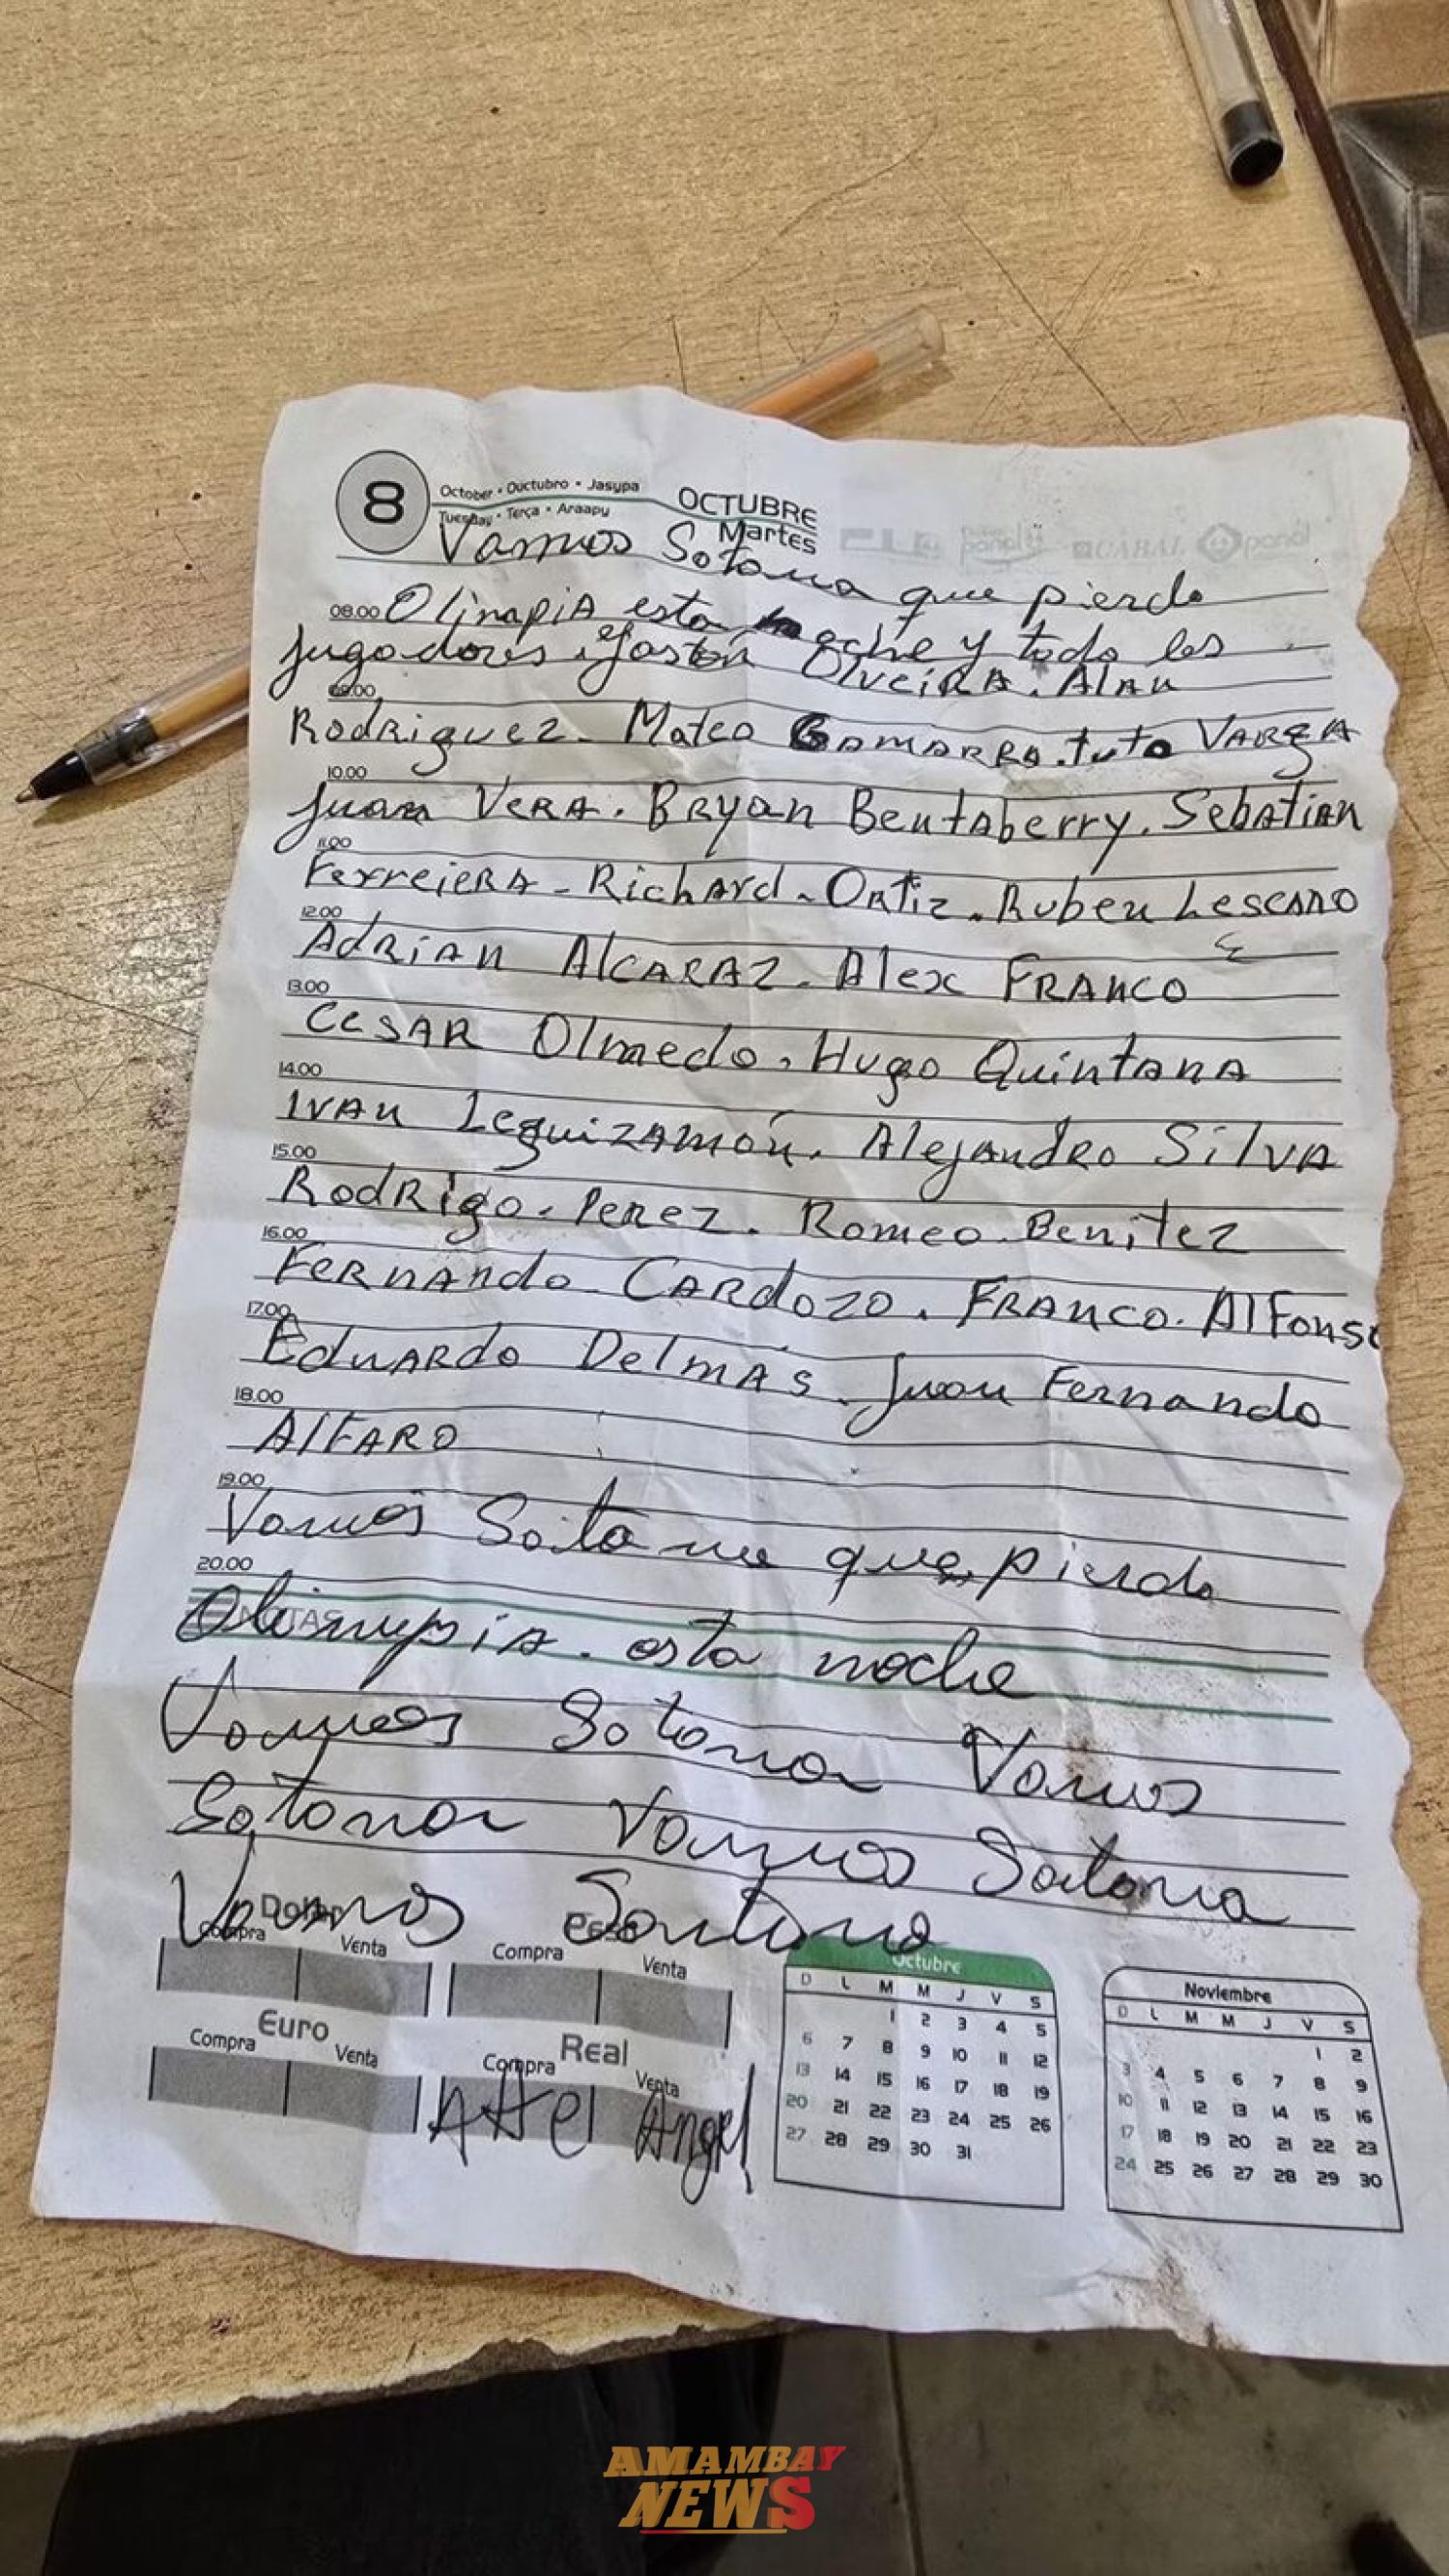 8
October • Ouctubro • Jasypa
OCTUBRE
Tuesday • Terça • Araapy
Martes
CABAL
panal
Vamos Satana que pierda
08.00 OlimpiA esta noche y todo los
jugadores Gastón OlveiRA. Alan
09.00
RodRiguez. Mateo GAMARRA. tuto VARgA
10.00
Juan VERA. BRyan Bentaberry. SebAtiAn
11.00
FerreieRA - RichArd - ORTiz. Ruben LescANO
12.00
AdRiAn AlCARAZ. Alex FRANCO
13.00
CESAR Olmedo. Hugo QuintANA
14.00
IVAN LeguizAmón. AlejandRo SilVA
15.00
RodRigo. PeRez. Romeo. Benitez
16.00
FeRNANdo CARdozo. FRANCO. AlFonso
17.00
EduARdo DelmÁs. Juan Fernando
18.00
AlFARO
19.00
Vamos Satana que pierda
20.00
NOTAS
OlimpiA. esta noche
Vamos Satana Vamos
Satana Vamos Satana
Vamos Santana
Compra Venta Compra Venta
Euro Real
Compra Venta Compra Venta
Angel
Octubre
D L M M J V S
1 2 3 4 5
6 7 8 9 10 11 12
13 14 15 16 17 18 19
20 21 22 23 24 25 26
27 28 29 30 31
Noviembre
D L M M J V S
1 2
3 4 5 6 7 8 9
10 11 12 13 14 15 16
17 18 19 20 21 22 23
24 25 26 27 28 29 30
AMAMBAY
NEWS